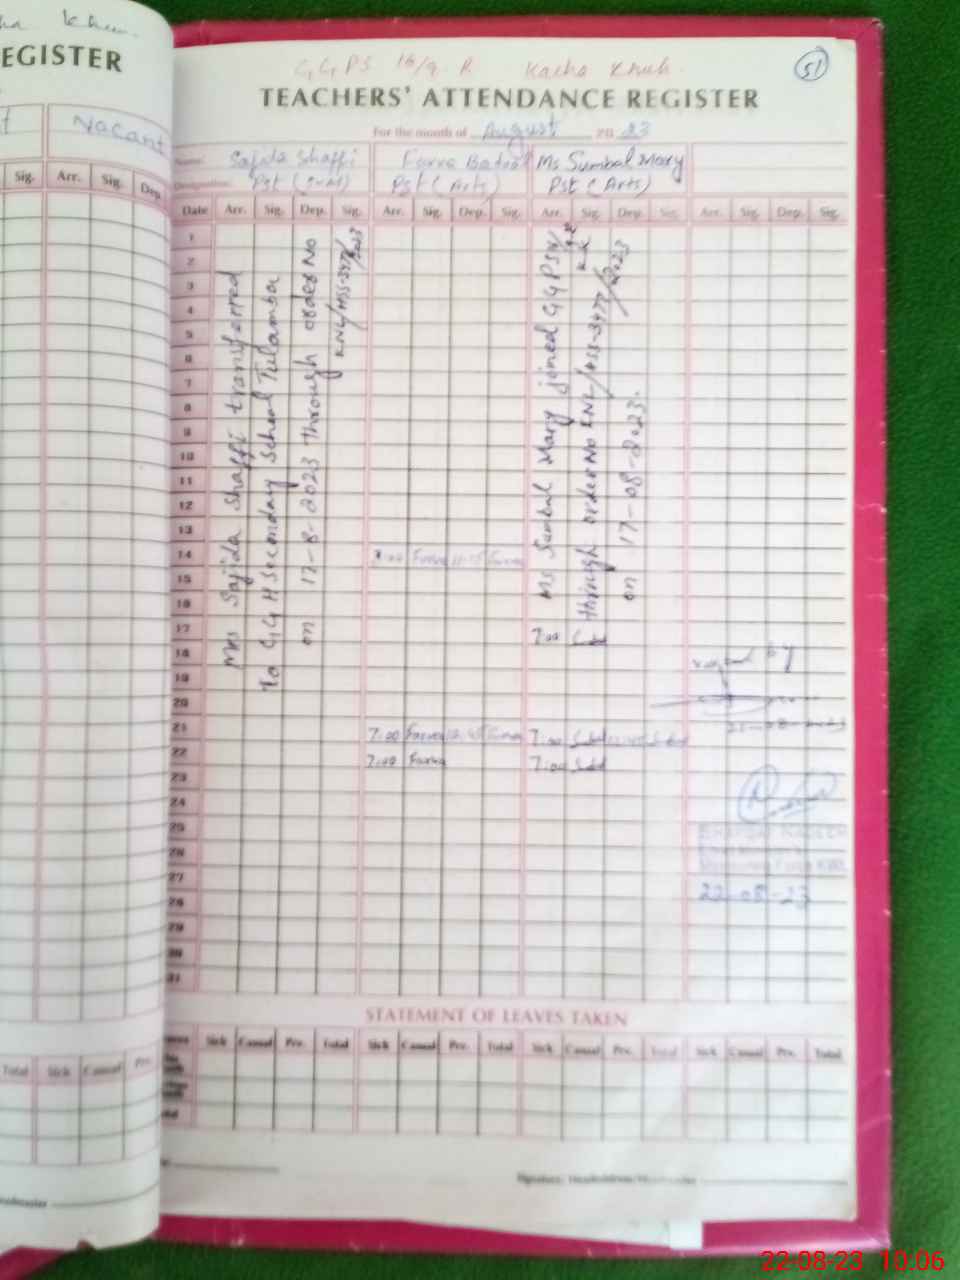 EGISTER
Vacant
Sig. Arr. Sig. Dep.
Total Sick Casual Prv.
51
GGPS 16/9-R Kacha Khuh.
TEACHERS' ATTENDANCE REGISTER
For the month of August 20 23
Name: Sajida Shaffi Farva Batool Ms Sumbal Mary
Designation: Pst Pst (Arts) Pst (Arts)
Date Arr. Sig. Dep. Sig. Arr. Sig. Dep. Sig. Arr. Sig. Dep. Sig. Arr. Sig. Dep. Sig.
1
2
3
4
5
6
7
8
9
10
11
12
13
14 Farwa
15
16
17 7:00
18
19
20
21 7:00 Farwa 7:00
22 7:00 Farwa 7:00
23
24
25
26
27
28
29
30
31
Mrs Sajida Shaffi transferred
to GGH Secondary School Tulamba
on 17-8-2023 through order No
KNL/HSS-3477/2023
Ms Sumbal Mary joined GGPS
through order No KNL/HSS-3477/2023
on 17-08-2023.
by
22-08-23
STATEMENT OF LEAVES TAKEN
Sick Casual Prv. Total Sick Casual Prv. Total Sick Casual Prv. Total Sick Casual Prv. Total
22-08-23 10:06